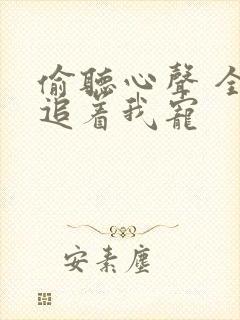 偷聽心聲 全
追着我寵
安素塵